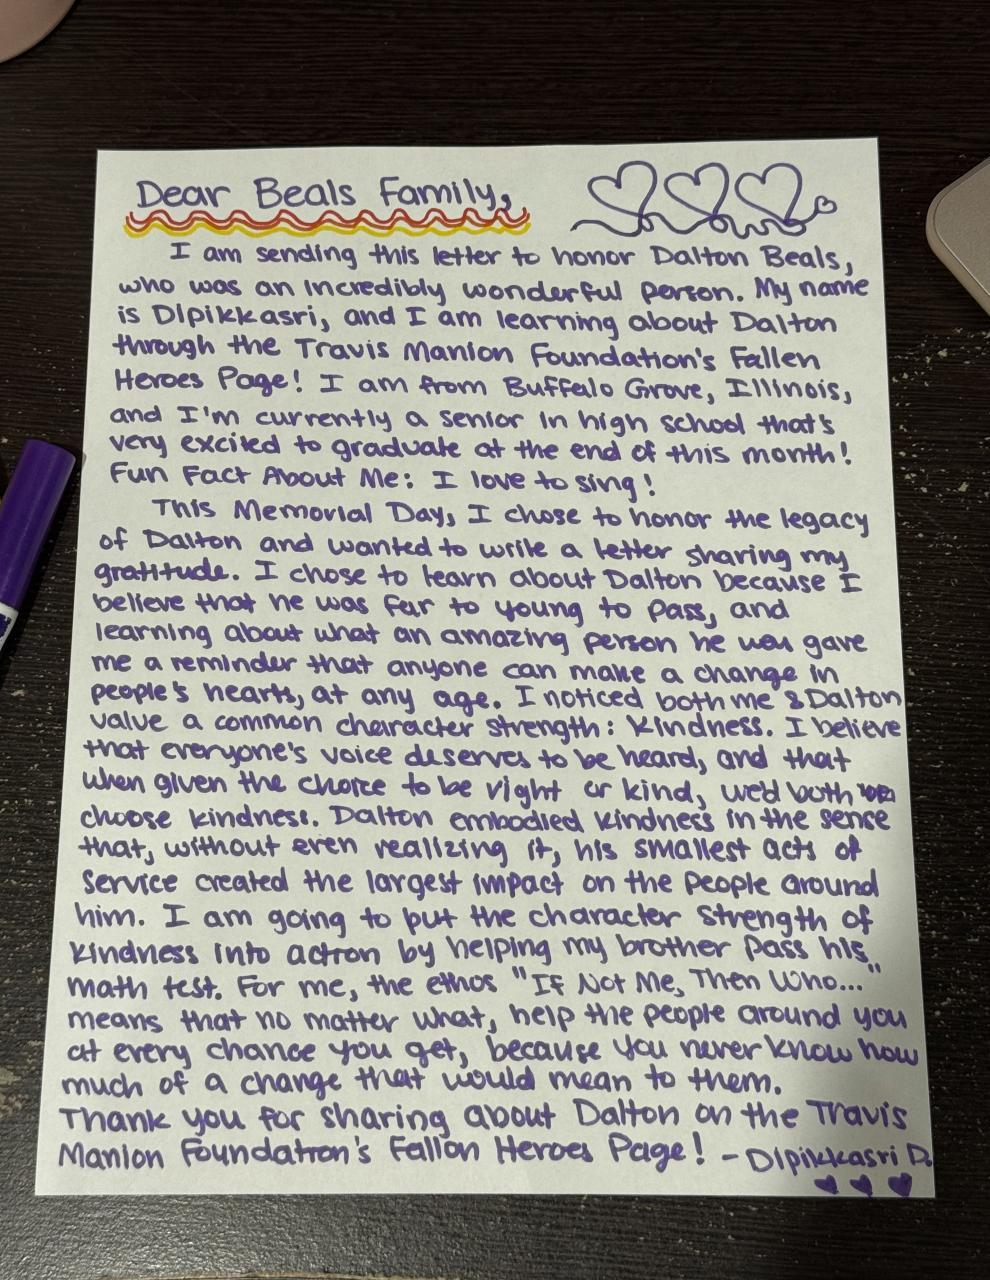 Dear Beals Family,
I am sending this letter to honor Dalton Beals,
who was an incredibly wonderful person. My name
is Dipikkasri, and I am learning about Dalton
through the Travis Manion Foundation's Fallen
Heroes Page! I am from Buffalo Grove, Illinois,
and I'm currently a senior in high school that's
very excited to graduate at the end of this month!
Fun Fact About Me: I love to sing!
This Memorial Day, I chose to honor the legacy
of Dalton and wanted to write a letter sharing my
gratitude. I chose to learn about Dalton because I
believe that he was far to young to pass, and
learning about what an amazing person he was gave
me a reminder that anyone can make a change in
people's hearts, at any age. I noticed both me & Dalton
value a common character strength: Kindness. I believe
that everyone's voice deserves to be heard, and that
when given the choice to be right or kind, we'd both
choose kindness. Dalton embodied kindness in the sense
that, without even realizing it, his smallest acts of
service created the largest impact on the people around
him. I am going to put the character strength of
kindness into action by helping my brother pass his
math test. For me, the ethos "If Not Me, Then Who..."
means that no matter what, help the people around you
at every chance you get, because you never know how
much of a change that would mean to them.
Thank you for sharing about Dalton on the Travis
Manion Foundation's Fallon Heroes Page! - Dipikkasri D.